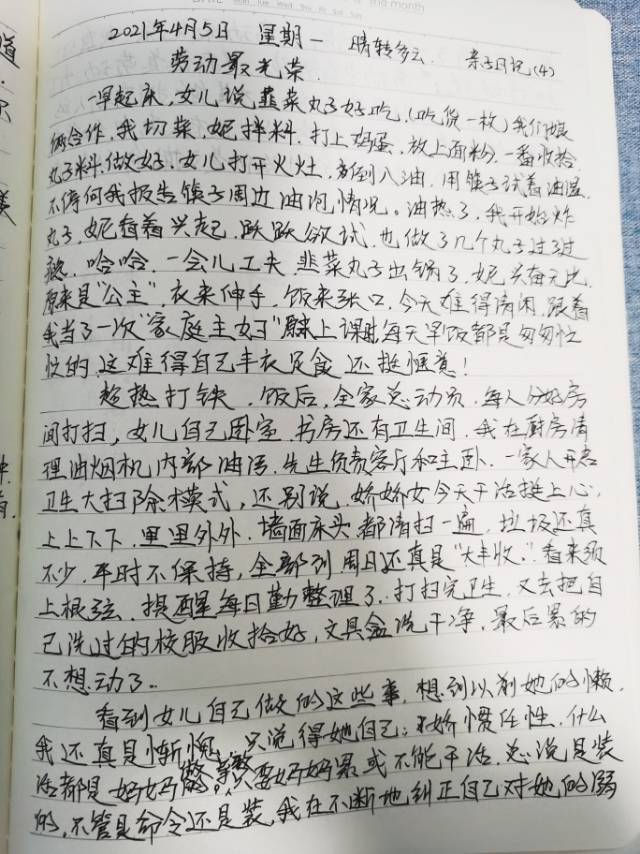 2021年4月5日 星期一 晴转多云 亲子日记(4)
劳动最光荣.
一早起床,女儿说韭菜丸子好吃,(吃货一枚)我们娘
俩合作,我切菜,妮拌料.打上鸡蛋,放上面粉.一番收拾
丸子料做好.女儿打开火灶,倒入油,用筷子试着油温,
不停向我报告筷子周边油泡情况。油热了,我开始炸
丸子,妮看着兴起,跃跃欲试,也做了几个丸子过过
瘾,哈哈.一会儿工夫,韭菜丸子出锅了,妮兴奋无比.
原来是"公主",衣来伸手,饭来张口,今天难得清闲,跟着
我当了一次"家庭主妇"原来上课时每天早饭都是匆匆忙
忙的,这难得自己丰衣足食,还挺惬意!
趁热打铁,饭后,全家总动员,每人分好房
间打扫,女儿自己卧室,书房还有卫生间,我在厨房清
理油烟机内部油污,先生负责客厅和主卧.一家人开启
卫生大扫除模式,还别说,娇娇女今天干活挺上心,
上上下下,里里外外,墙面床头都清扫一遍,垃圾还真
不少,平时不保持,全部到周日还真是"大丰收".看来须
上根弦,提醒每日勤整理了.打扫完卫生,又去把自
己洗过的校服收拾好,文具盒洗干净,最后累的
不想动了..
看到女儿自己做的这些事,想到以前她的懒,
我还真是惭愧,只说得她自己:娇惯任性,什么
活都是妈妈的。只要妈妈累或不能干活.总说是装
的,不管是命令还是装,我在不断地纠正自己对她的